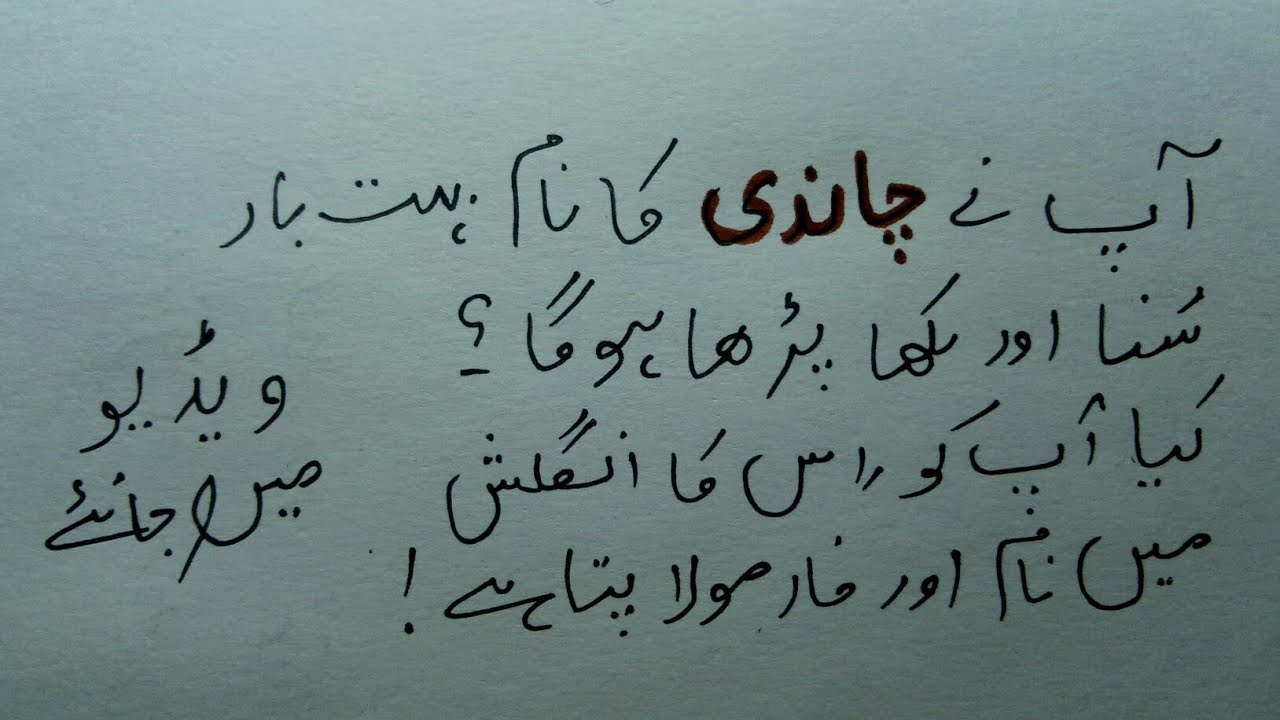 آپ نے چاندی کا نام بہت بار
سُنا اور لکھا پڑھا ہوگا؟
کیا آپ کو اس کا انگلش
میں نام اور فارمولا پتا ہے!
ویڈیو
میں جانئے